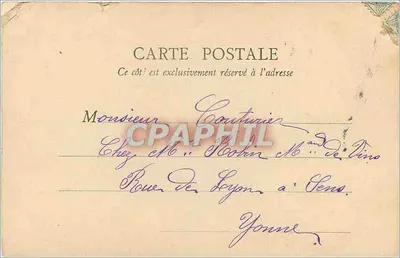 CARTE POSTALE
Ce côté est exclusivement réservé à l'adresse
Monsieur Couturier
CPAPHIL
Chez Mr. Robin Mand de Vins
Rue de Lyon a Sens
Yonne